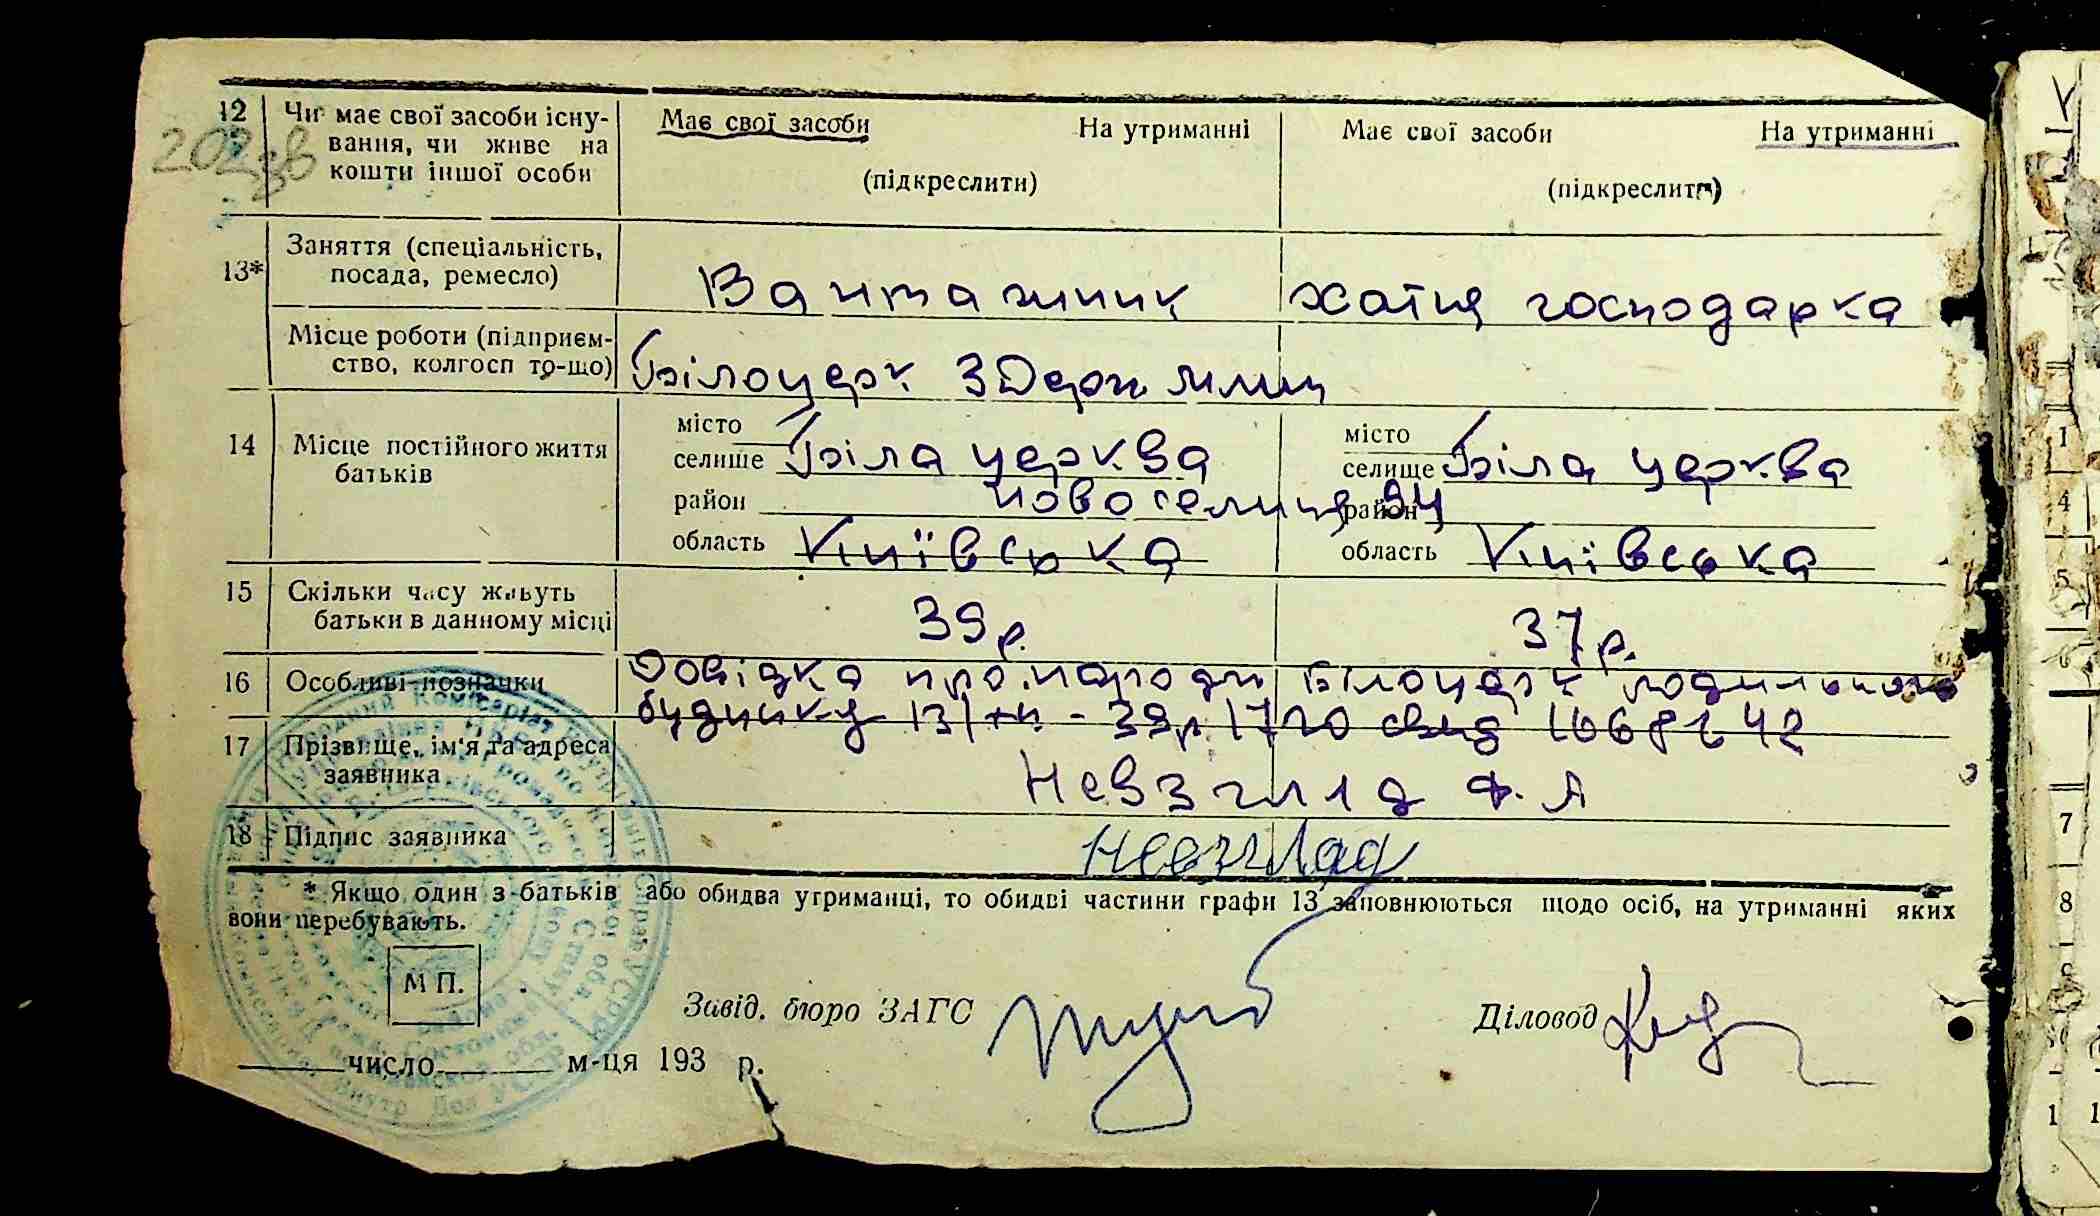 12 Чи має свої засоби існу-
вання, чи живе на
кошти іншої особи
Має свої засоби На утриманні
(підкреслити)
Має свої засоби На утриманні
(підкреслити)
202зв
13* Заняття (спеціальність,
посада, ремесло)
Вантажник хатня господарка
Місце роботи (підприєм-
ство, колгосп то-що)
Білоцерк 3 Держ млин
14 Місце постійного життя
батьків
місто
селище Біла церква
район Новоселиця 94
область Київська
місто
селище Біла церква
район
область Київська
15 Скільки часу живуть
батьки в данному місці
39 р. 37 р.
16 Особливі позначки
Довідка про народж Білоцерк родильного
будинку 13/ 39р 1720
17 Прізвище, ім'я та адреса
заявника
Невзгляд Ф. А
18 Підпис заявника
Невзгляд
* Якщо один з батьків або обидва утриманці, то обидві частини графи 13 заповнюються щодо осіб, на утриманні яких
вони перебувають.
М П.
Завід. бюро ЗАГС
Діловод
число м-ця 193 р.